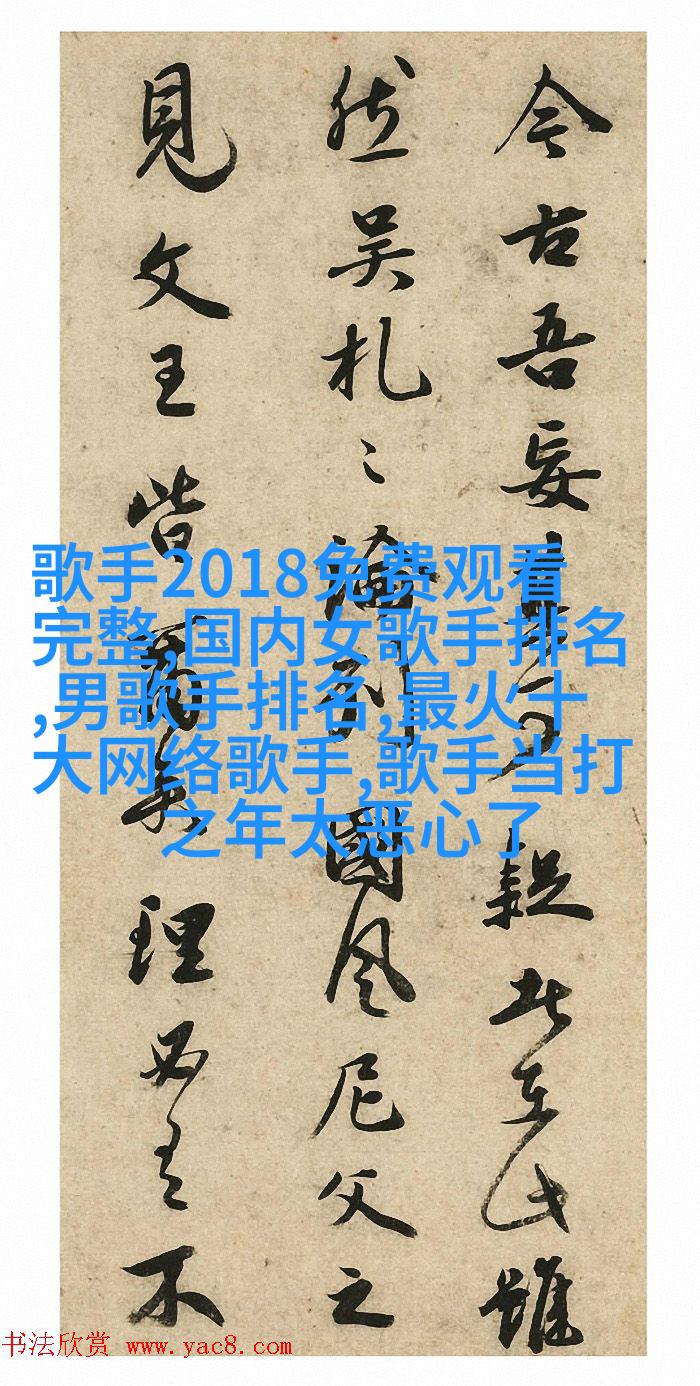 今古吾妄親此雖
然吴札〻論列國風尼父之
見文王皆理必有不
歌手2018免费观看
完整,国内女歌手排名
,男歌手排名,最火十
大网络歌手,歌手当打
之年太恶心了
书法欣赏 www.yac8.com